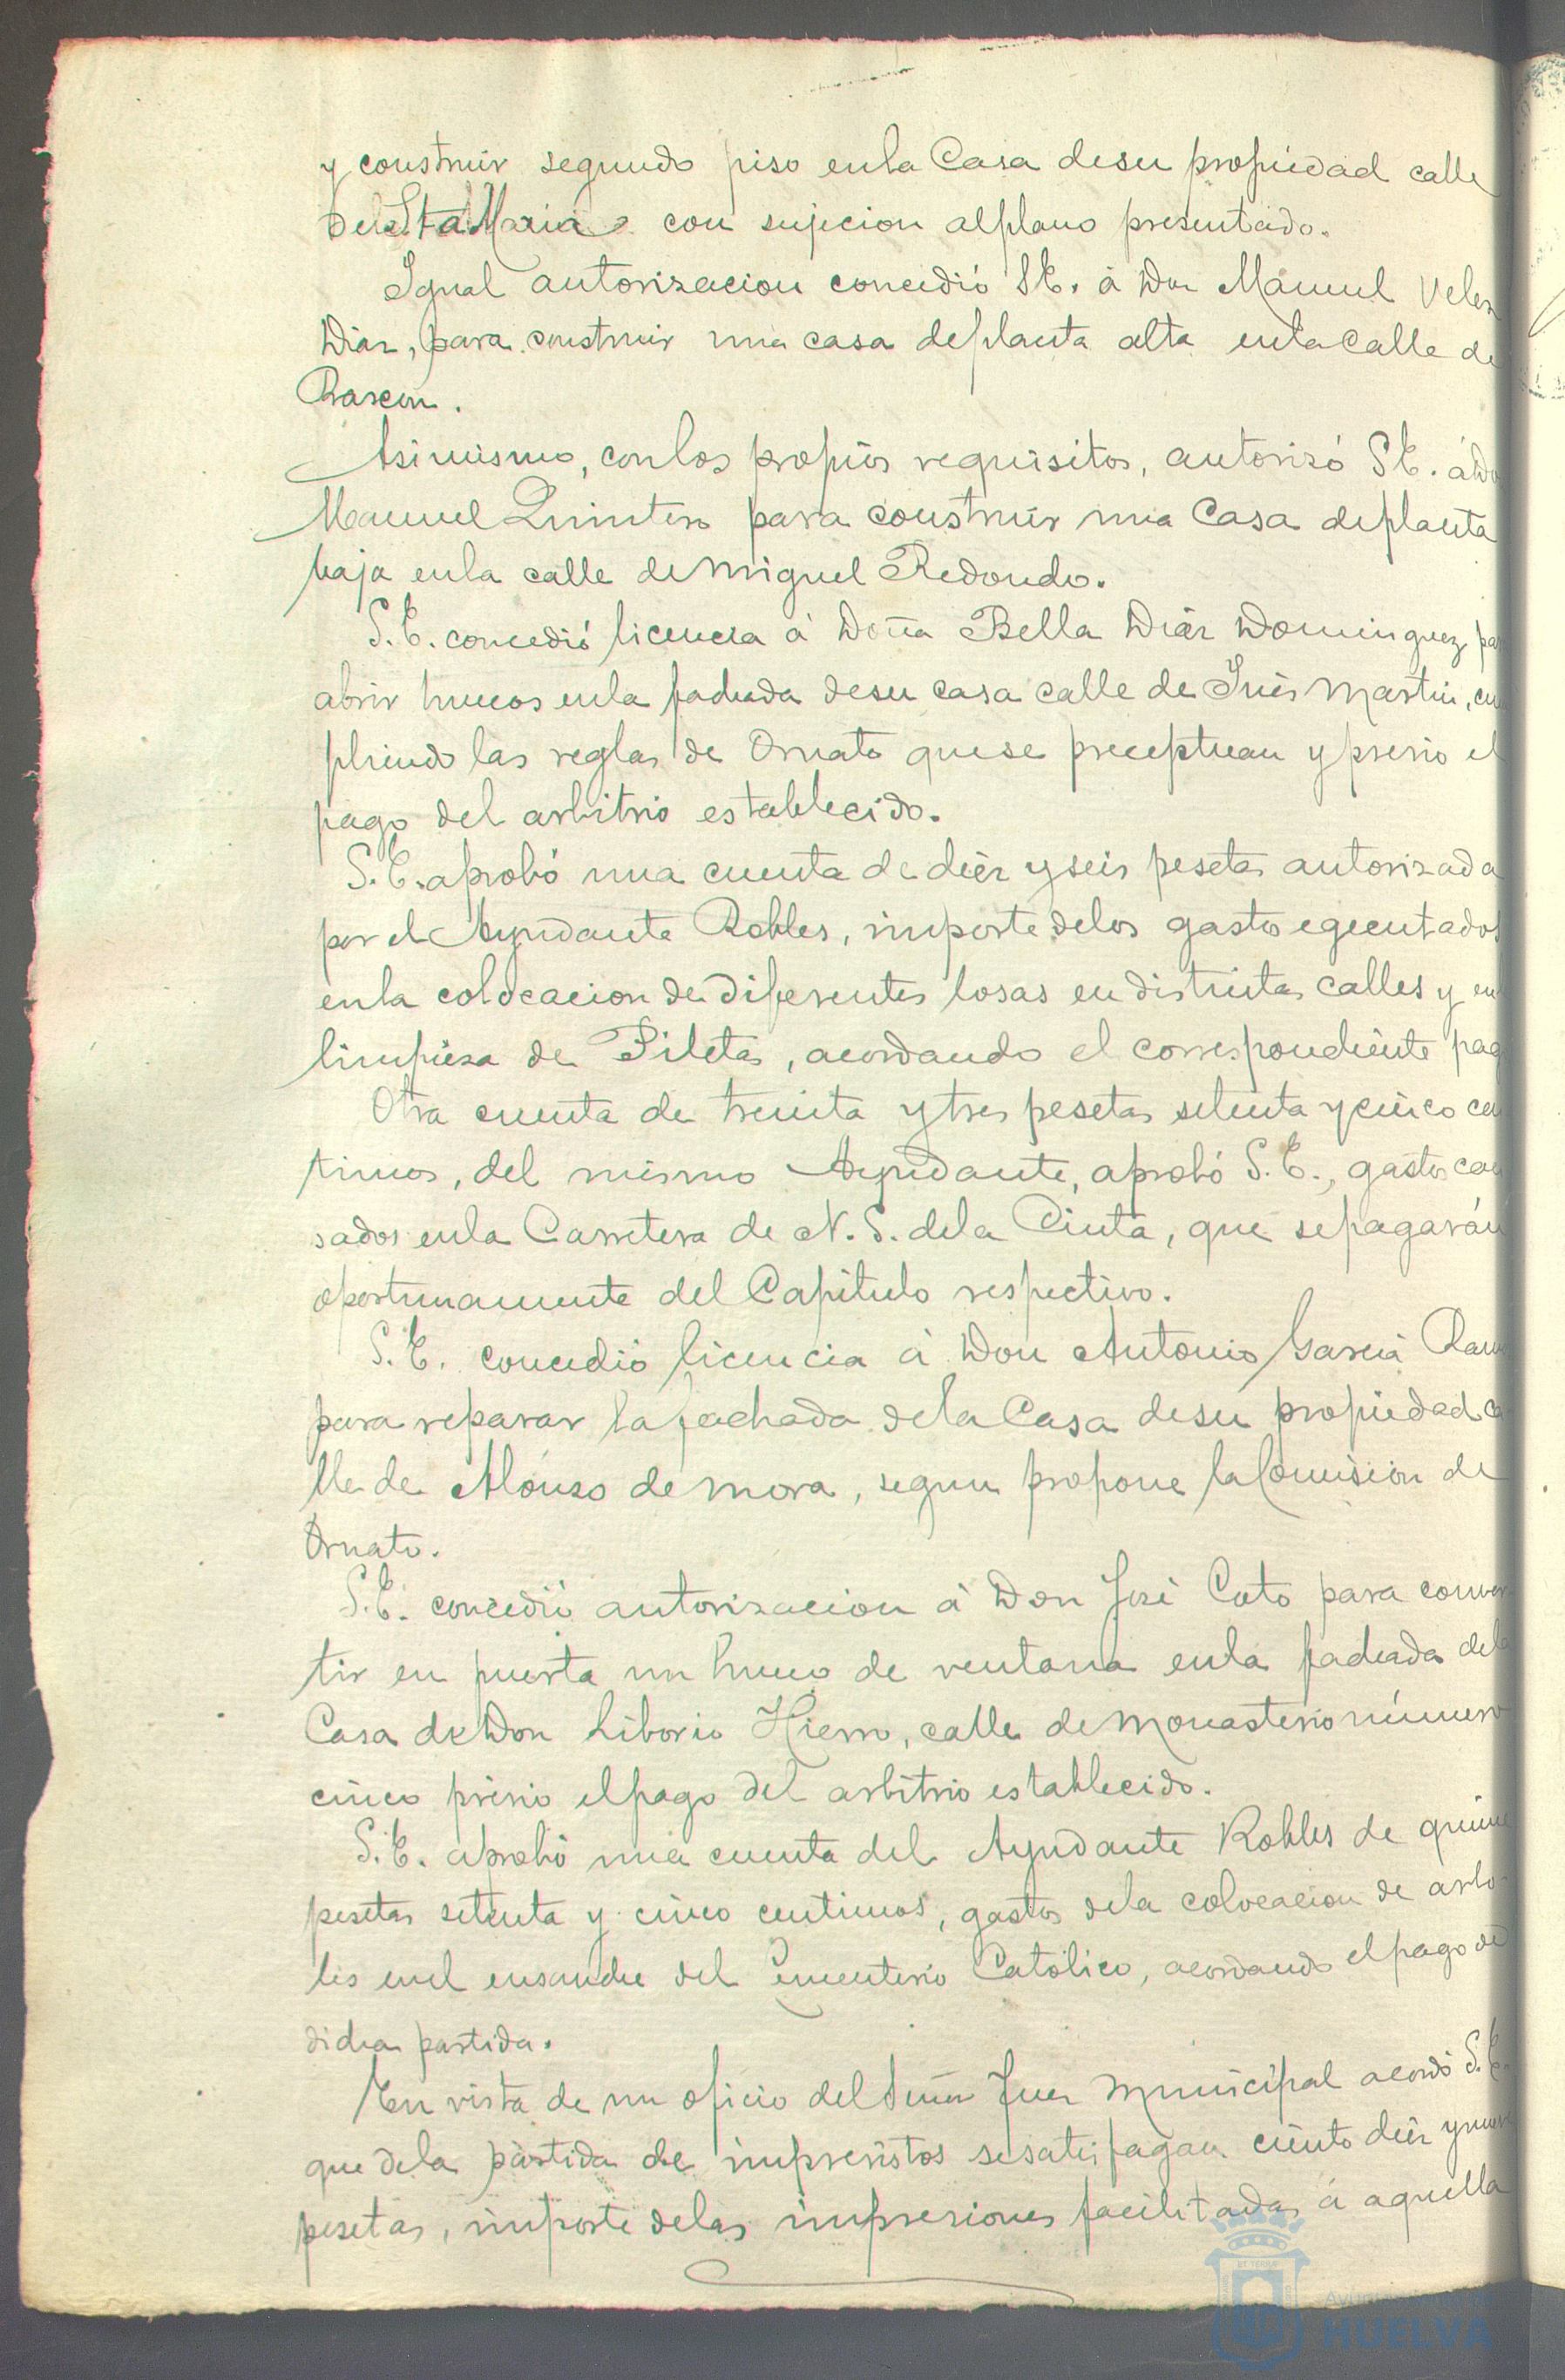 y construir segundo piso en la Casa de su propiedad calle
de Sta Maria con sujecion al plano presentado.
Igual autorizacion concedió S.E. á Don Manuel Velez
Diaz, para construir una casa de planta alta en la calle de
Rascon.
Asimismo, con los propios requisitos, autorizó S.E. á Do
Manuel Quintero para construir una Casa de planta
baja en la calle de Miguel Redondo.
S.E. concedió licencia á Doña Bella Diaz Dominguez, pa
abrir huecos en la fachada de su casa calle de Inés Martin, cu
pliendo las reglas de Ornato que se preceptuan y previo el
pago del arbitrio establecido.
S.E. aprobó una cuenta de diez y seis pesetas autorizada
por el Ayudante Robles, importe de los gastos egecutados
en la colocacion de diferentes losas en distintas calles y en
limpieza de Piletas, acordando el correspondiente pag
Otra cuenta de treinta y tres pesetas setenta y cinco cen
timos, del mismo Ayudante, aprobó S.E., gastos cau
sados en la Carretera de N.S. de la Cinta, que se pagarán
oportunamente del Capitulo respectivo.
S.E. concedió licencia á Don Antonio Garcia Ram
para reparar la fachada de la Casa de su propiedad ca
lle de Alonso de Mora, segun propone la Comision de
Ornato.
S.E. concedió autorizacion á Don José Coto para conver
tir en puerta un hueco de ventana en la fachada de la
Casa de Don Liborio Hierro, calle de Monasterio número
cinco prévio el pago del arbitrio establecido.
S.E. aprobó una cuenta del Ayudante Robles de quince
pesetas setenta y cinco centimos, gastos de la colocacion de arbo
les en el ensanche del Cementerio Católico, acordando el pago de
dicha partida.
En vista de un oficio del Señor Juez Municipal acordó S.E.
que de la partida de imprevistos se satisfagan ciento diez y nueve
pesetas, importe de las impresiones facilitadas á aquella
HUELVA